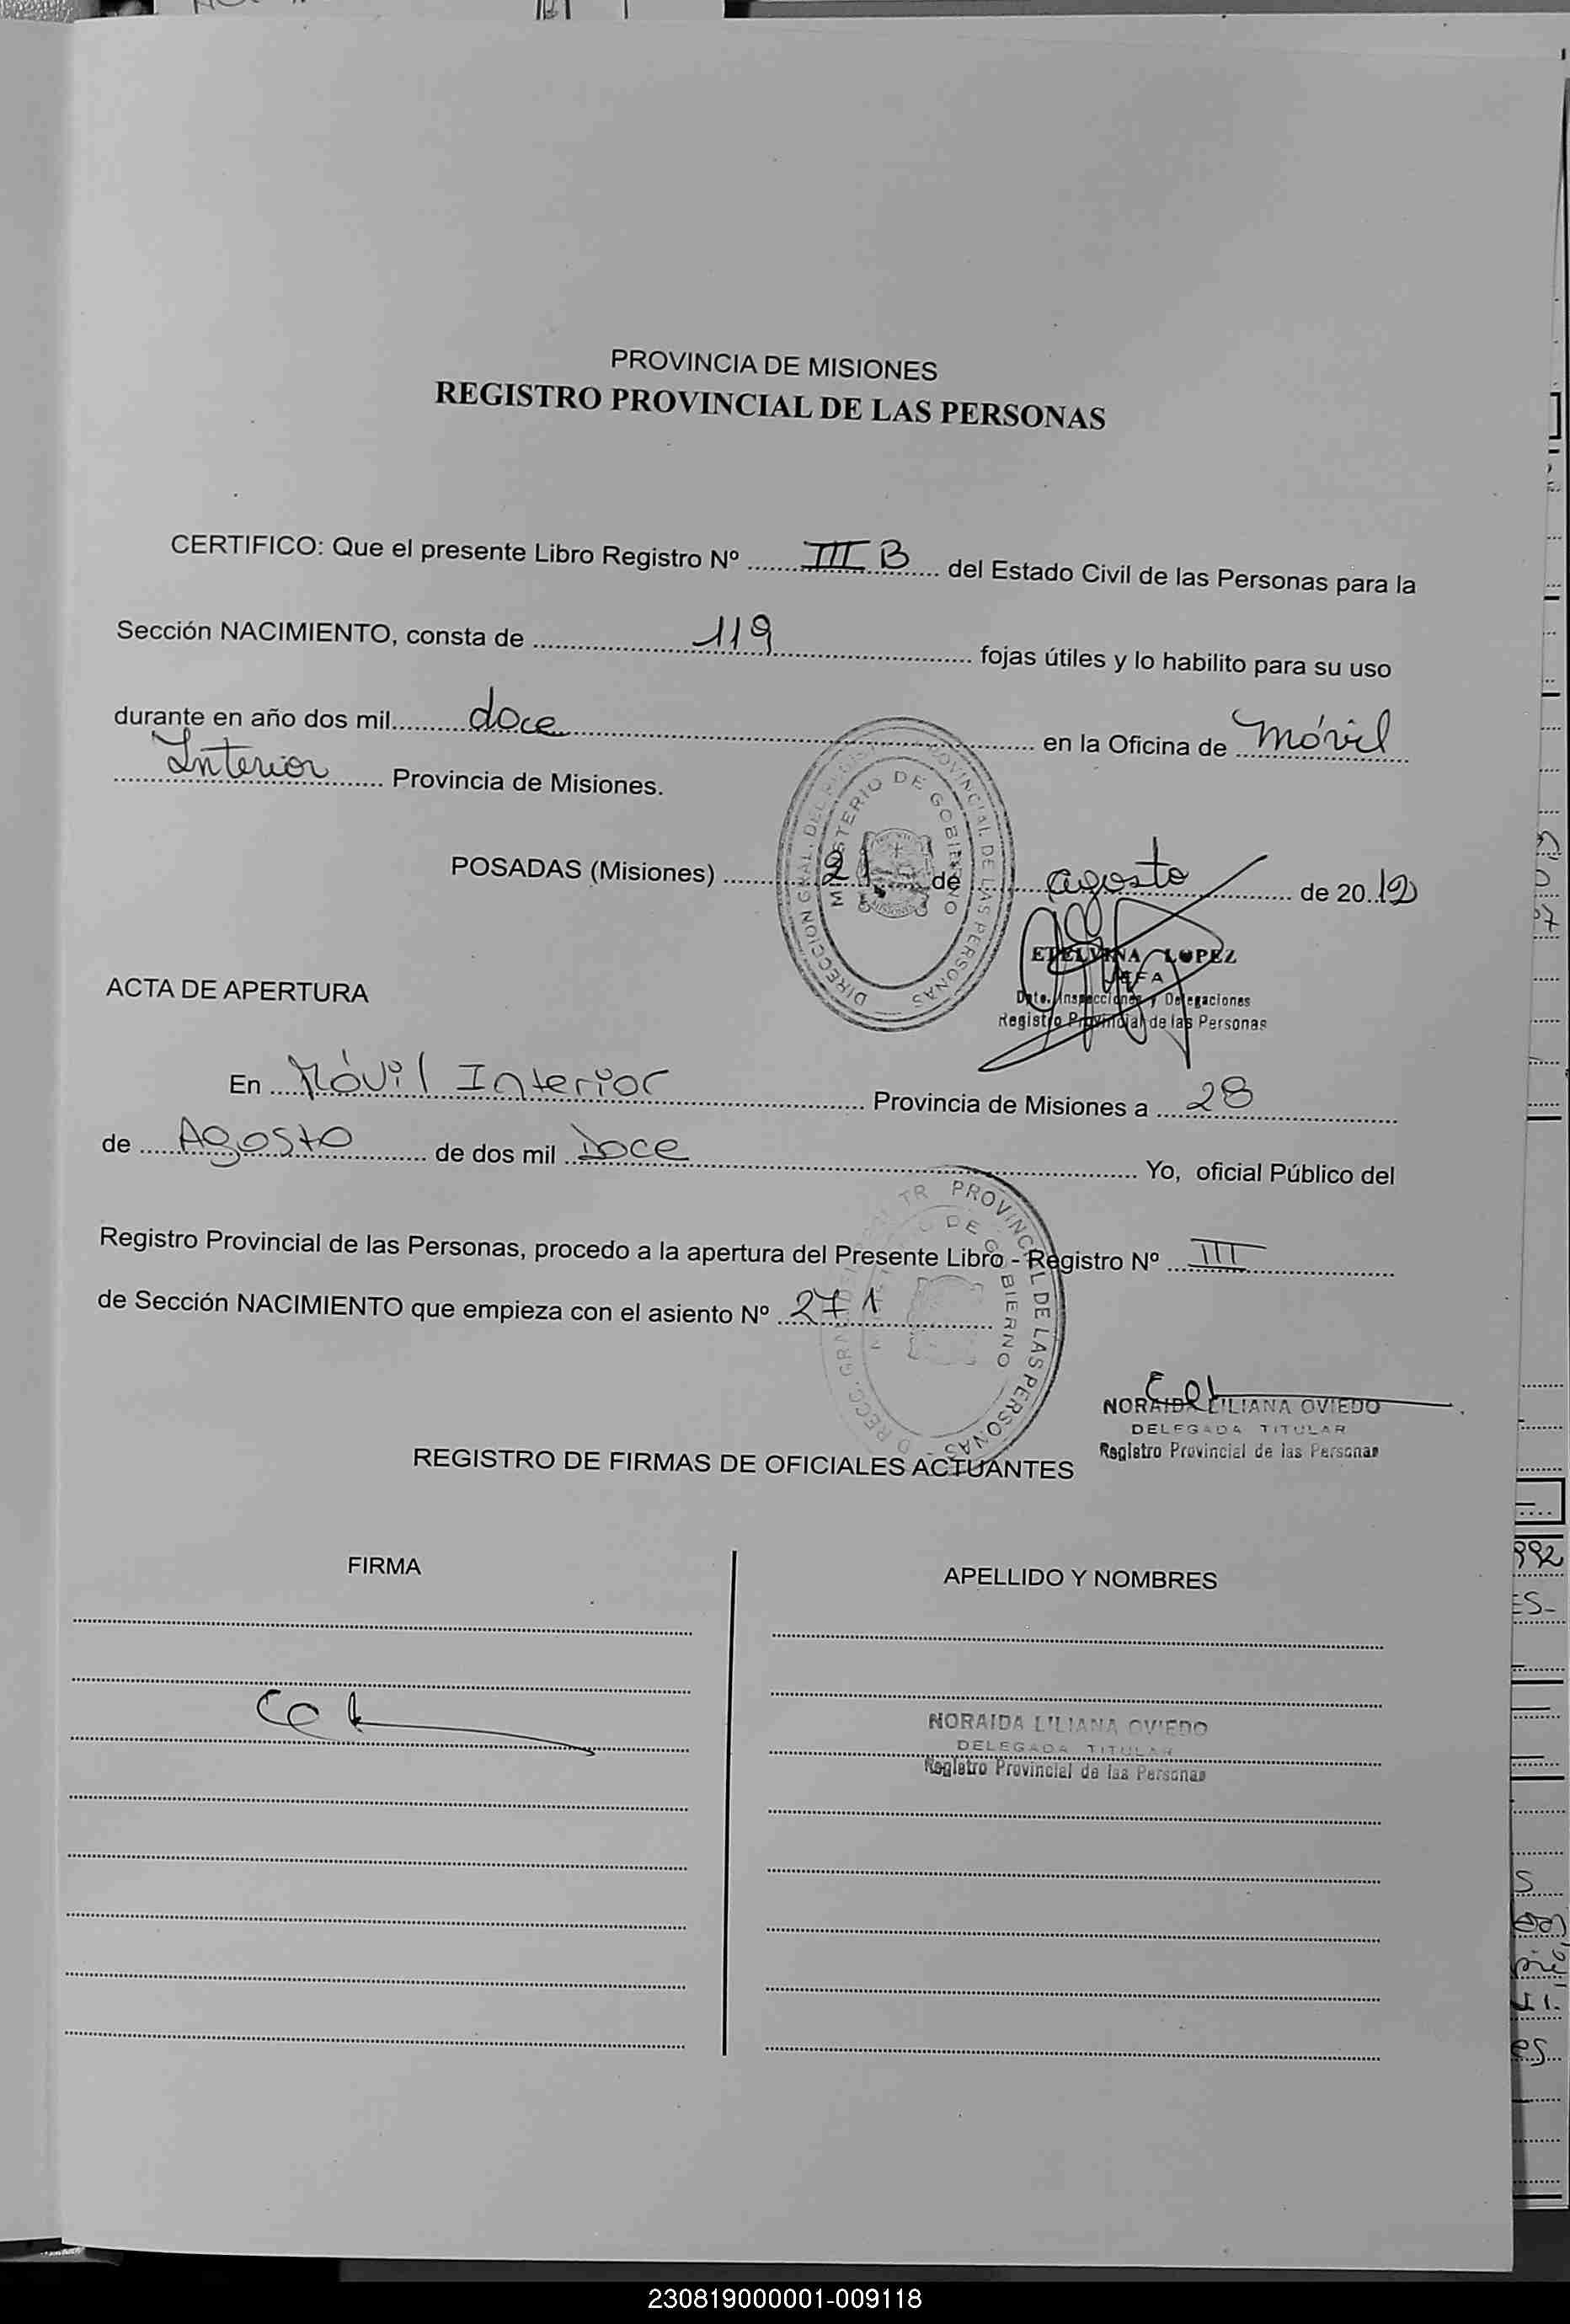 PROVINCIA DE MISIONES
REGISTRO PROVINCIAL DE LAS PERSONAS
CERTIFICO: Que el presente Libro Registro Nº ........III B........ del Estado Civil de las Personas para la
Sección NACIMIENTO, consta de ........119........ fojas útiles y lo habilito para su uso
durante en año dos mil........doce........ en la Oficina de ....móvil....
....Interior.... Provincia de Misiones.
POSADAS (Misiones) ........21........de ........agosto........ de 20..12
DIRECCION GRAL. DEL REGIST PROVINCIAL DE LAS PERSONAS
MINISTERIO DE GOBIERNO
ETELVINA LOPEZ
JEFA
Dpto. Inspecciones y Delegaciones
Registro Provincial de las Personas
ACTA DE APERTURA
En ....Móvil Interior........ Provincia de Misiones a ....28........
de ....Agosto........ de dos mil ..Doce........ Yo, oficial Público del
Registro Provincial de las Personas, procedo a la apertura del Presente Libro - Registro Nº ....III........
de Sección NACIMIENTO que empieza con el asiento Nº ..271........
TR PROVINCIAL DE LAS PERSONAS
DE GOBIERNO
NORAIDA LILIANA OVIEDO
DELEGADA TITULAR
Registro Provincial de las Personas
REGISTRO DE FIRMAS DE OFICIALES ACTUANTES
FIRMA
APELLIDO Y NOMBRES
NORAIDA LILIANA OVIEDO
DELEGADA TITULAR
Registro Provincial de las Personas
992
ES-
S
es
230819000001-009118